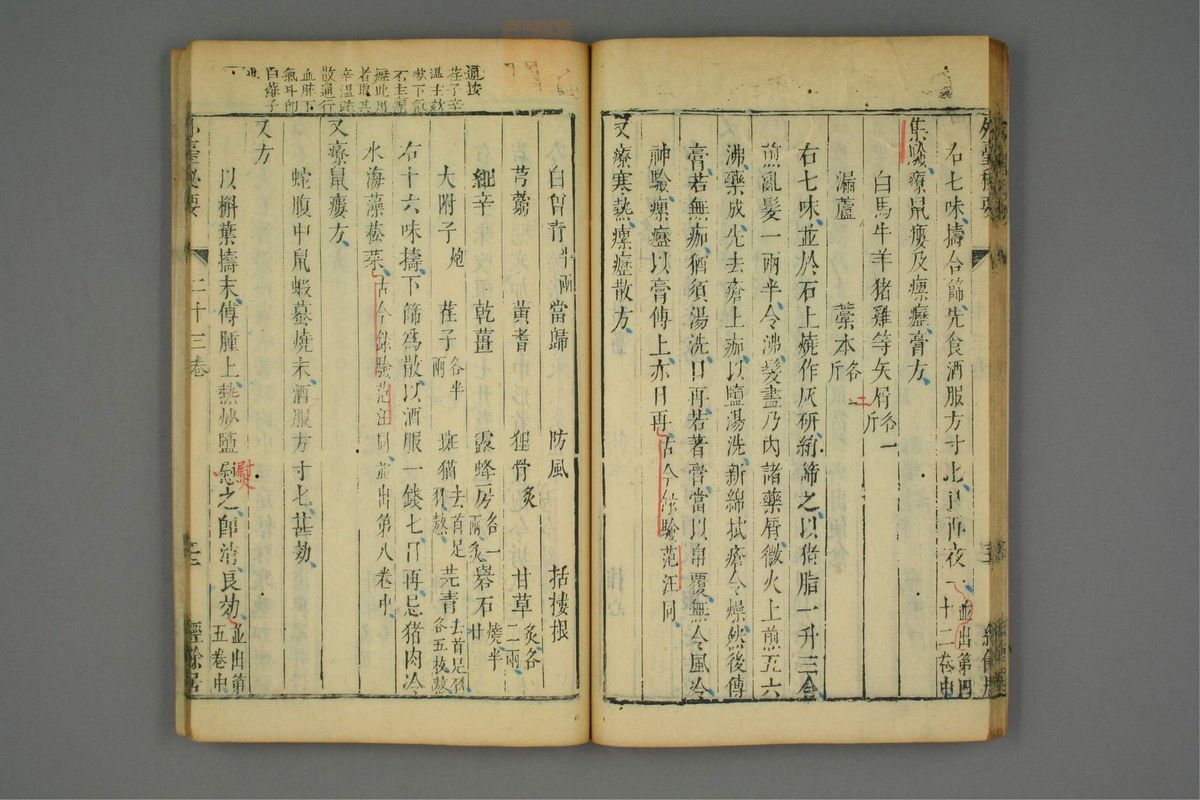 右七味擣合篩先食酒服方寸匕日再夜一並出第四十二卷中
集驗療鼠瘻及瘰癧膏方
白馬牛羊猪雞等矢屑各一斤
漏蘆 藁本各二斤
右七味並於石上燒作灰研絹篩之以猪脂一升三合
煎亂髮一兩半令沸髮盡乃內諸藥屑微火上煎五六
沸藥成先去瘡上痂以鹽湯洗新綿拭瘡令燥然後傅
膏若無痂猶須湯洗日再若著膏當以帛覆無令風冷
神驗瘰癧以膏傅上亦日再古今錄驗范汪同
又療寒熱瘰癧散方
白曾青半兩 當歸 防風 括樓根
芎藭 黃耆 狸骨炙 甘草炙各二兩
細辛 乾薑 露蜂房各一兩炙 礜石燒半
大附子炮 荏子各半兩 斑猫去首足翅熬 芫青去首足翅各五枚熬
右十六味擣下篩爲散以酒服一錢匕日再忌猪肉冷
水海藻菘菜古今錄驗范汪同並出第八卷中
又療鼠瘻方
蛇腹中鼠蝦蟇燒末酒服方寸匕甚効
又方
以槲葉擣末傅腫上熱炒鹽慰之即消良効並出第五卷中
熨
二十三卷
經餘居